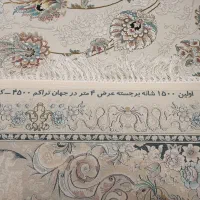 اولین ۱۵۰۰ شانه برجسته عرض ۴ متر در جهان تراکم ۴۵۰۰ -